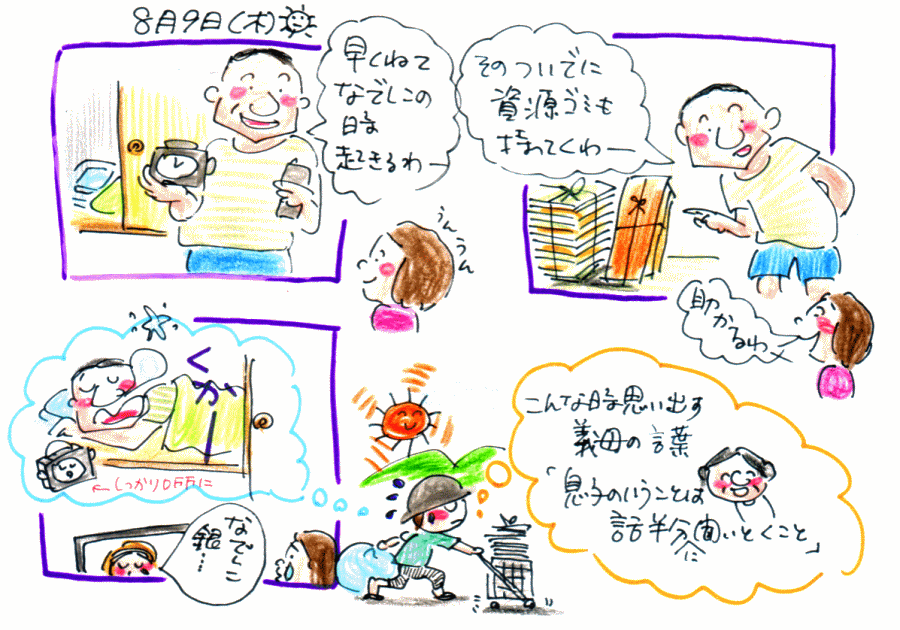 8月9日(木)
早くねて
なでしこの
時
起きるわー
そのついでに
資源ゴミも
持ってくわー
うんうん
助かるわ
くかー
←しっかりOFFに
なでしこ
銀…
こんな時思い出す
義母の言葉
「息子のいうことは
話半分に聞いとくこと」